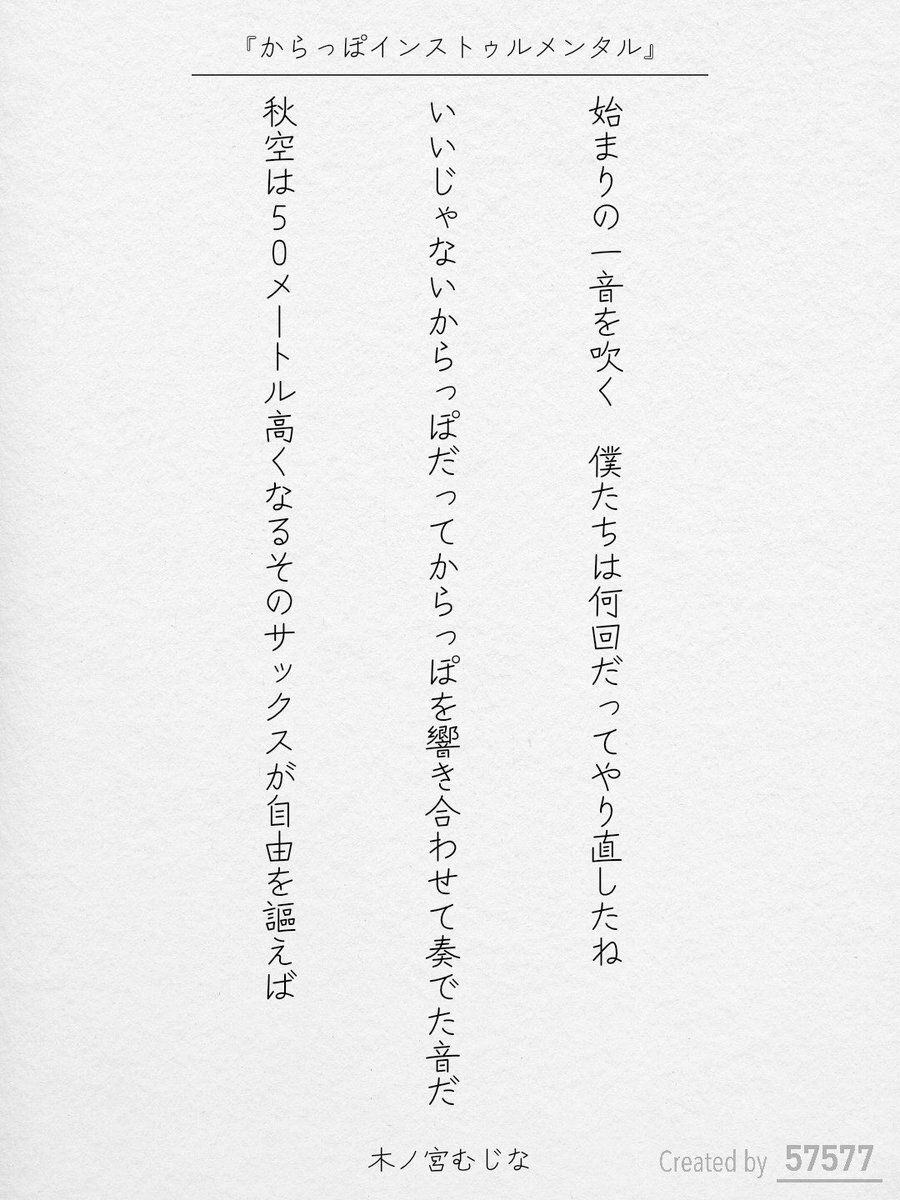 『からっぽインストゥルメンタル』
始まりの一音を吹く　僕たちは何回だってやり直したね
いいじゃないからっぽだってからっぽを響き合わせて奏でた音だ
秋空は50メートル高くなるそのサックスが自由を謳えば
木ノ宮むじな
Created by 57577